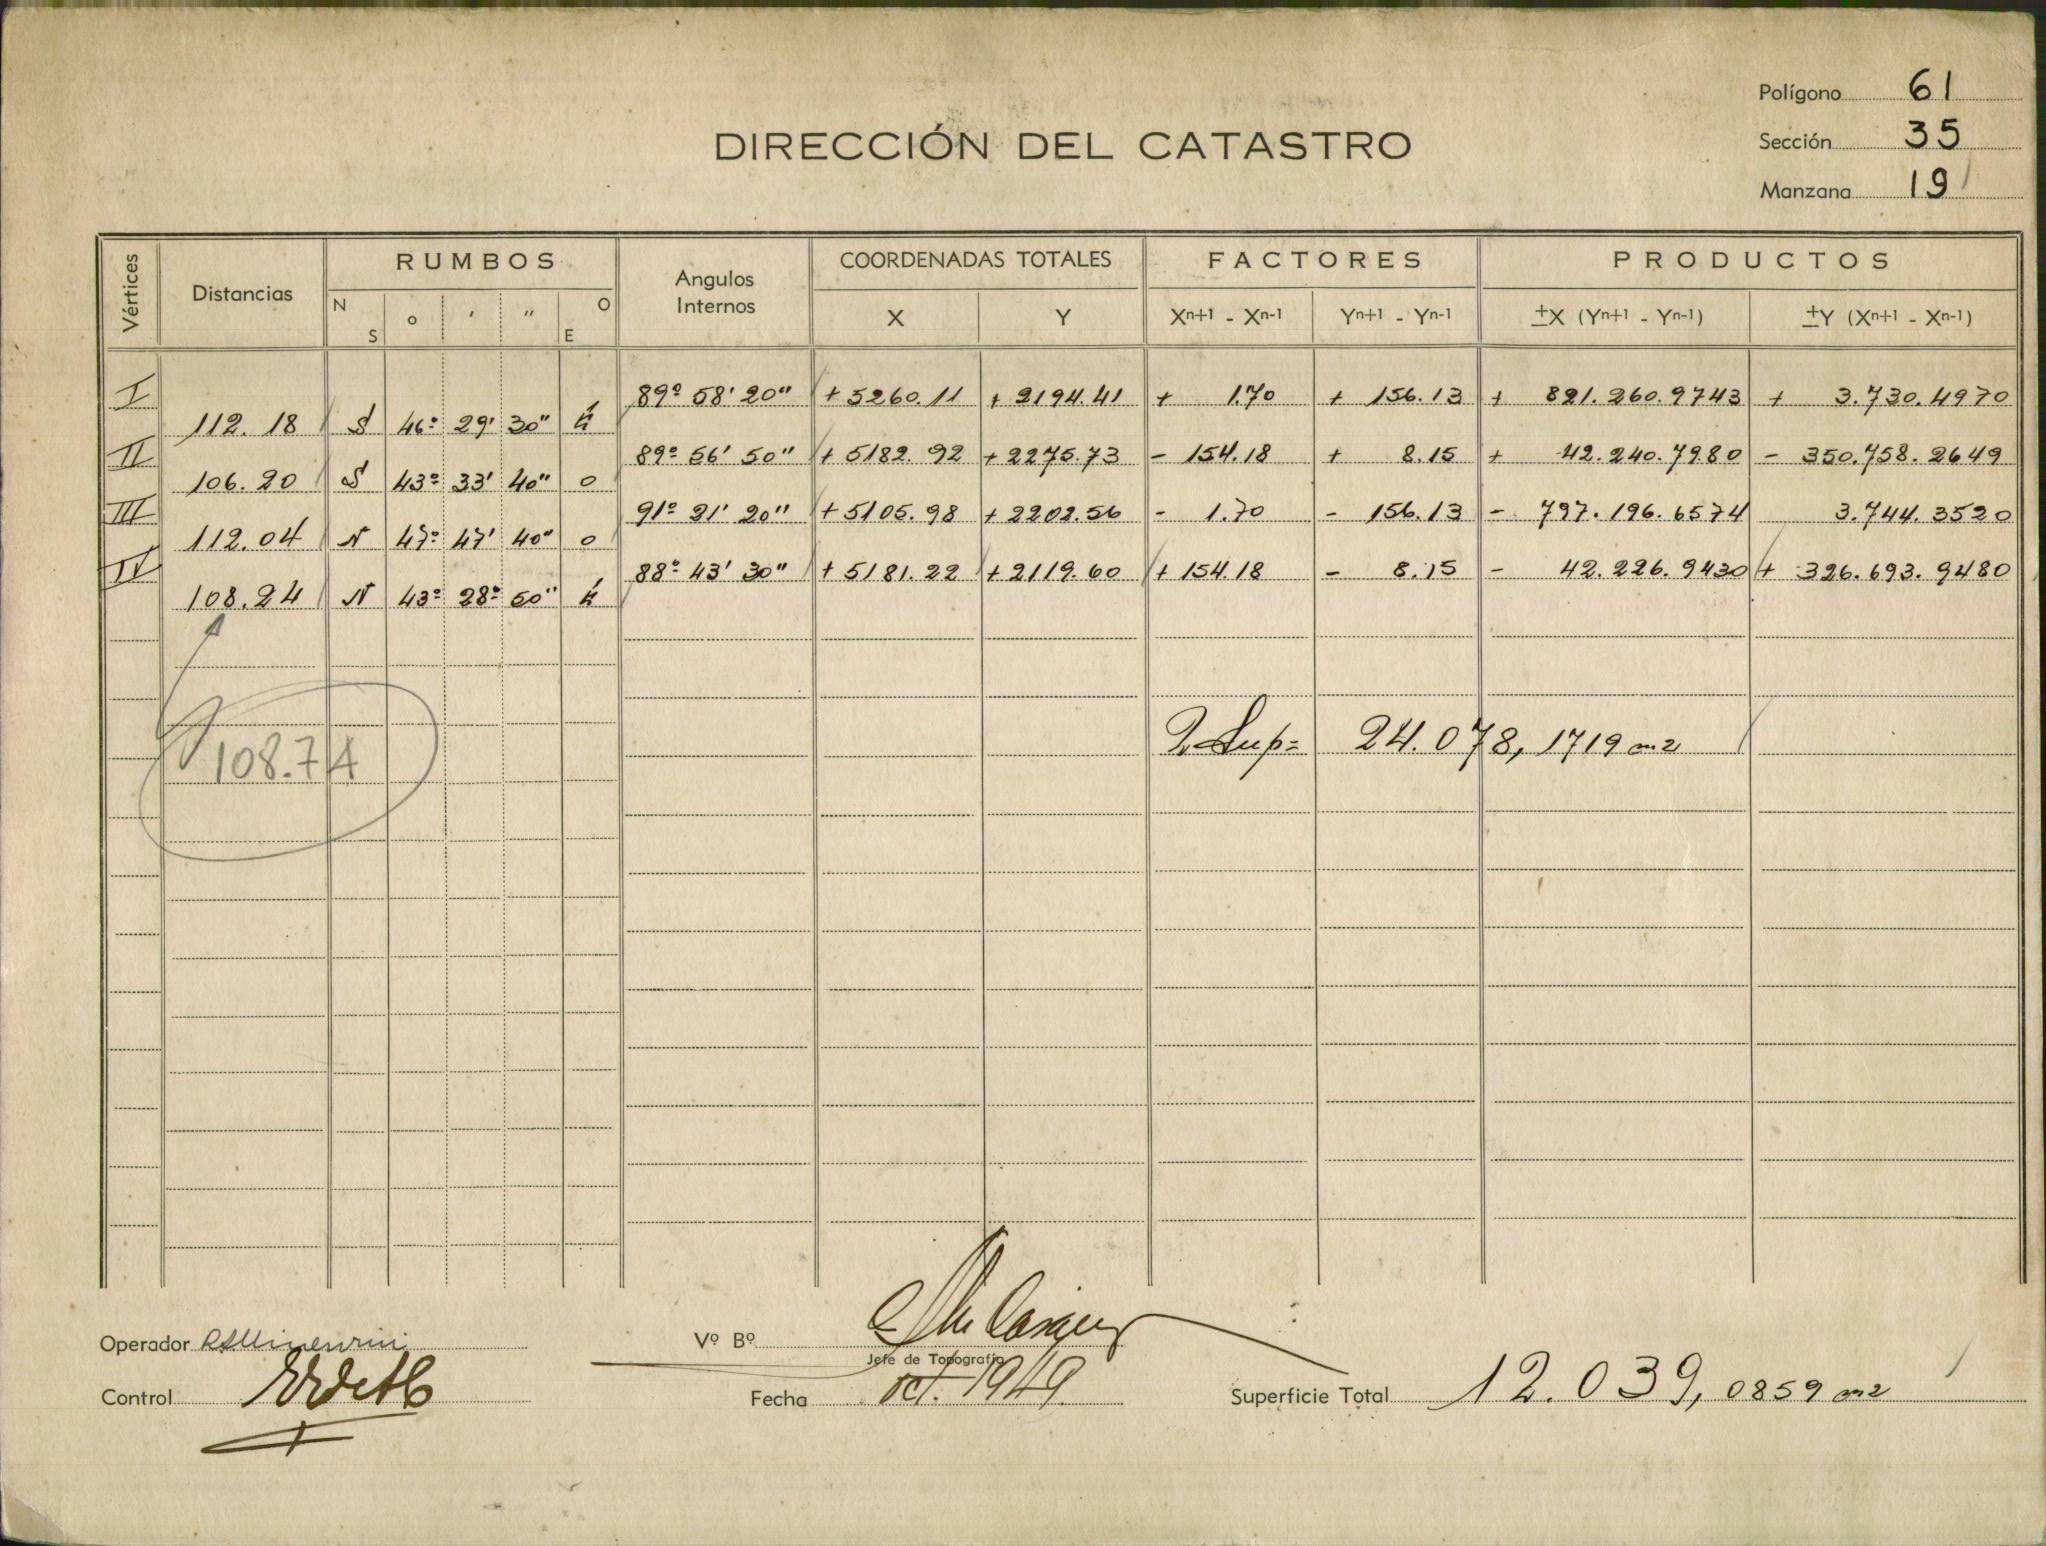 Polígono 61
DIRECCIÓN DEL CATASTRO
Sección 35
Manzana 19
Vértices Distancias RUMBOS Angulos Internos COORDENADAS TOTALES FACTORES PRODUCTOS
N S o ' '' O E X Y Xⁿ⁺¹ - Xⁿ⁻¹ Yⁿ⁺¹ - Yⁿ⁻¹ ±X (Yⁿ⁺¹ - Yⁿ⁻¹) ±Y (Xⁿ⁺¹ - Xⁿ⁻¹)
I 89º 58' 20" + 5260.11 + 2194.41 + 1.70 + 156.13 + 821.260.9743 + 3.730.4970
112.18 S 46º 29' 30" E
II 89º 56' 50" + 5182.92 + 2275.73 - 154.18 + 8.15 + 42.240.7980 - 350.758.2649
106.20 S 43º 33' 40" O
III 91º 21' 20" + 5105.98 + 2202.56 - 1.70 - 156.13 - 797.196.6574 3.744.3520
112.04 N 47º 47' 40" O
IV 88º 43' 30" + 5181.22 + 2119.60 + 154.18 - 8.15 - 42.226.9430 + 326.693.9480
108.24 N 43º 28º 50" E
2 Sup= 24.078,1719 m2
108.74
Operador
Vº Bº
Jefe de Topografía
Control
Fecha oct. 1949
Superficie Total 12.039,0859 m2